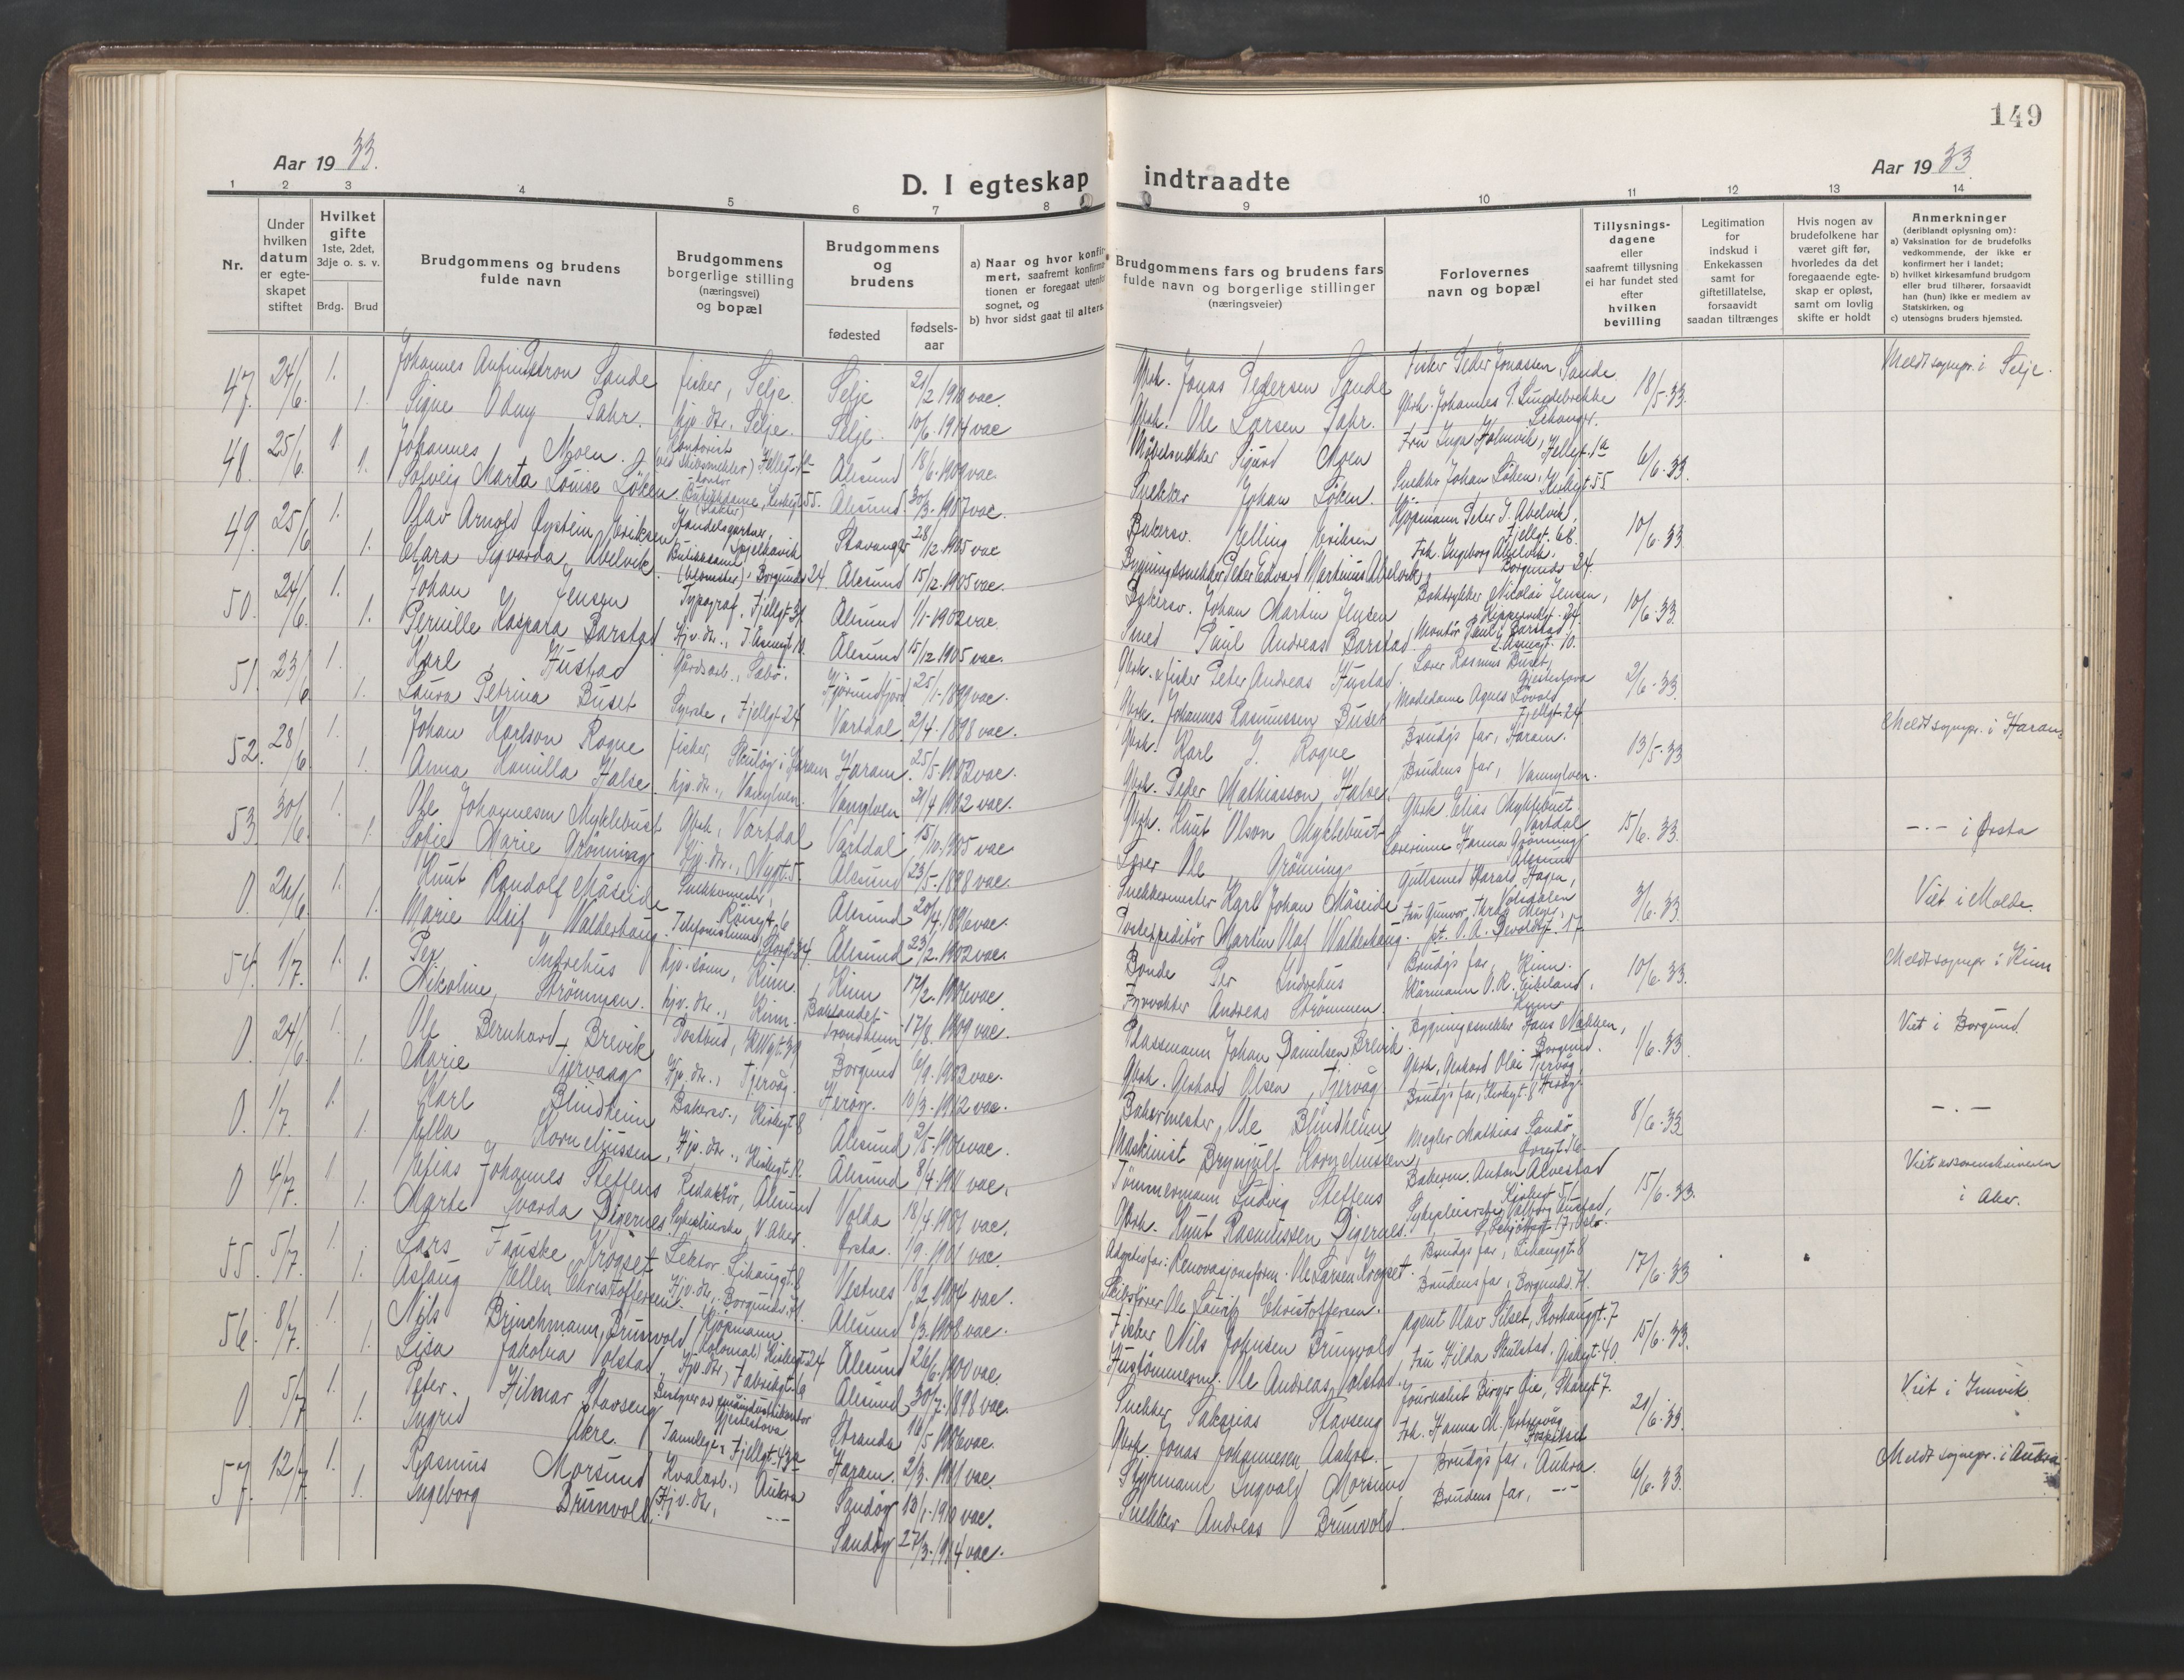 149
Aar 19 33.
D. I egteskap indtraadte
Aar 19 33
1 2 3 4 5 6 7 8 9 10 11 12 13 14
Nr.
Under hvilken datum er egteskapet stiftet
Hvilket gifte 1ste, 2det, 3dje o. s. v.
Brdg. Brud
Brudgommens og brudens fulde navn
Brudgommens borgerlige stilling (næringsvei) og bopæl
Brudgommens og brudens
fødested
fødselsaar
a) Naar og hvor konfir-
mert, saafremt konfirma
tionen er foregaat utenfor
sognet, og
b) hvor sidst gaat til alters
Brudgommens fars og brudens fars fulde navn og borgerlige stillinger (næringsveier)
Forlovernes navn og bopæl
Tillysningsdagene eller saafremt tillysning ei har fundet sted efter hvilken bevilling
Legitimation for indskud i Enkekassen samt for giftetillatelse, forsaavidt saadan tiltrænges
Hvis nogen av brudefolkene har været gift før, hvorledes da det foregaaende egteskap er opløst, samt om lovlig skifte er holdt
Anmerkninger
(deriblandt oplysning om):
a) Vaksination for de brudefolks vedkommende, der ikke er konfirmert her i landet;
b) hvilket kirkesamfund brudgom eller brud tilhører, forsaavidt han (hun) ikke er medlem av Statskirken, og
c) utensogns bruders hjemsted.
47. 24/6. 1. Johannes Sande fisker, Selje. Selje 21/2 1910 vac. Gbrk. Jonas Pedersen Sande Fisker Peder Jonassen Sande 18/5-33. Meldt sognepr. i Selje.
1. Signe Odny Pahr. hjv. dtr., Selje. Selje. 10/6-1914 vac Gbrk. Ole Larsen Pahr. Gbrk. Johannes P. Sundebrekke
48. 25/6. 1 Johannes Moen. Kontorist (ved Skibsmekler) Fjellgt. 1a Ålesund 18/6-1909 vac. Møbelsnekker Sigurd Moen Fru Inga Holmvik, Fjellgt. 1a 6/6-33.
1. Solveig Marta Louise Löken. Butikkdame, Kirkegt 55. Ålesund. 30/3-1907 vac. Snekker Johan Löken. Snekker Johan Löken, Kirkegt 55
49. 25/6 1. Olav Arnold Øystein Eriksen Handelsgartner, Spjelkavik Stavanger 28/12-1905 vac Bakersv. Elling Eriksen Kjøpmann Peter J. Abelvik, Fjellgt. 68. 10/6-33
1. Clara Syvarda Abelvik. Butikkdame (blomster), Borgundv 24. Ålesund 15/12-1905 vac. Bygningssnekker Peter Edvard Martinius Abelvik. Frk. Ingeborg Abelvik, Borgundv 24.
50. 24/6. 1. Johan Jensen Typograf, Fjellgt. 31. Ålesund 1/1-1902 vac. Bakersv. Johan Martin Jensen Boktrykker Nicolai Jensen, 10/6-33.
1. Pernille Kaspara Barstad Hjv. dtr., Ålesund 15/12-1905 vac. Smed Paul Andreas Barstad Montör Paul Barstad,
51. 23/6 1. Karl Hustad Gårdsarb., Sæbö. Hjørundfjord 25/1-1899 vac. Gbrk. & fisker Peter Andreas Hustad. Lærer Rasmus Buset, Gjestestova 2/6-33.
1. Laura Petrina Buset Syerske, Fjellgt 24 Vartdal 2/4-1898 vac. Gbrk. Johannes Rasmussen Buset Motedame Agnes Lövold, Fjellgt 24
52. 28/6 1. Johan Karlson Rogne fisker, Skulöy i Haram Haram. 25/5-1902 vac. Gbrk. Karl J. Rogne Brudgs far, Haram. 13/5-33 Meldt sognepr. i Haram
1. Anna Kamilla Halse hjv. dtr., Vanylven. Vanylven 21/4 1902 vac. Gbrk. Peder Mathiasson Halse. Brudens far, Vannylven.
53. 30/6. 1. Ole Johannesen Myklebust Gbrk., Vartdal Vartdal 15/10-1905 vac Gbrk. Knut Olson Myklebust Gbrk. Elias Myklebust. Vartdal 15/6-33. -.- i Ørsta
1. Sofie Marie Grönning Hjv. dtr., Nygt. 5. Ålesund 23/5-1898 vac. Lærer Ole Grönning Lærerinne Hanna Grönning Ålesund
0. 26/6 1. Knut Randolf Måseide Snekkermester, Röisegt. 6 Ålesund 20/4-1896 vac. Snekkermester Karl Johan Måseide Gullsmed Harald Hagen, Volsdalen 3/6-33. Viet i Molde.
1. Marie Olufi Walderhaug. Telefonistinne, Storgt. 34. Ålesund 23/2-1902 vac. Postexpeditör Martin Olaf Walderhaug.
54. 1/7. 1. Per Indrehus hjv. sönn, Kinn. Kinn 17/2-1906 vac Bonde Per Indrehus Brudgs far, Kinn. 10/6-33. Meldt sognepr. i Kinn
1. Nikoline Strömmen. hjv. dtr., Kinn. Baklandet Trondheim 17/8-1909 vac. Fyrvokter Andreas Strömmen
0. 24/6. 1. Ole Bernhard Brevik Postbud, Borgund 6/9-1902 vac. Plassmann Johan Danielsen Brevik. Bygningssnekker Hans Nakken, Borgund. 1/6-33. Viet i Borgund.
1. Marie Tjervaag Hjv. dtr., Tjervåg Herøy. 10/3-1912 vac. Gbrk. Gerhard Olsen Tjervåg Gbrk. Gerhard Olai Tjervåg, Herøy.
0. 1/7. 1. Karl Blindheim Bakersv., Kirkegt 8 Ålesund 2/5-1906 vac. Bakermester Ole Blindheim Brudgs far, Kirkegt. 8 8/6-33 -.-
1. Ella Korneliussen, Hjv. dtr., Ålesund 8/4-1911 vac. Maskinist Brynjulf Korneliussen, Megler Mathias Sandö
0 4/7. 1 Elias Johannes Steffens Redaktör, Ålesund Volda 18/4-1901 vac. Tömmermann Ludvig Steffens Bakerm. Anton Alvestad 15/6-33. Viet i Aker.
1. Marte Gvarda Digernes. Sykepleierske, V. Aker. Ørsta. 1/9-1901 vac. Gbrk. Knut Rasmussen Digernes.
55. 5/7. 1. Lars Fauske Krogset Lektor. Lihauggt. 8 Vestnes 18/2-1904 vac. Adoptivfar: Renovasjonsform. Ole Larsen Krogset. Brudgs far, Lihauggt. 8 17/6-33
1. Aslaug Ellen Christoffersen. Hjv. dtr., Borgundv. 71. Ålesund 8/3-1908 vac. Skibsfører Ole Lauritz Christoffersen. Brudens far, Borgundv. 71.
56. 8/7. 1. Nils Brinchmann Brunvold Kjöpmann (kolonial) Kirkegt 24 Ålesund 26/6-1900 vac. Fisker Nils Johnsen Brunvold Agent Olav Silset, Storhauggt. 7 15/6-33.
1. Lisa Jakobia Volstad Hjv. dtr., Fabrikkgt. 9 Ålesund 30/7-1898 vac. Hustömmerm. Ole Andreas Volstad. Fru Hilda Skulstad,
0. 5/7 1. Peter Hilmar Stavseng Bestyrer av småindustrikontor Gjestestova Stranda 16/5-1906 vac. Snekker Sakarias Stavseng Journalist Birger Gie, Skaregt 7. 21/6-33. Viet i Innvik
1. Ingrid Akre. Tannlege, Fjellgt. 43a Haram. 2/3-1901 vac. Gbrk. Jonas Johannesen Aakre.
57. 12/7. 1. Rasmus Morsund Kvalarb., Aukra Sandöy 13/1-1910 vac. Styrmann Ingvald Morsund Brudgs far, Aukra. 6/6-33. Meldt sognepr. i Aukra.
1. Ingeborg Brunvold. Hjv. dtr., -.- Sandöy 27/3-1914 vac. Snekker Andreas O Brunvold. Brudens far, -.-